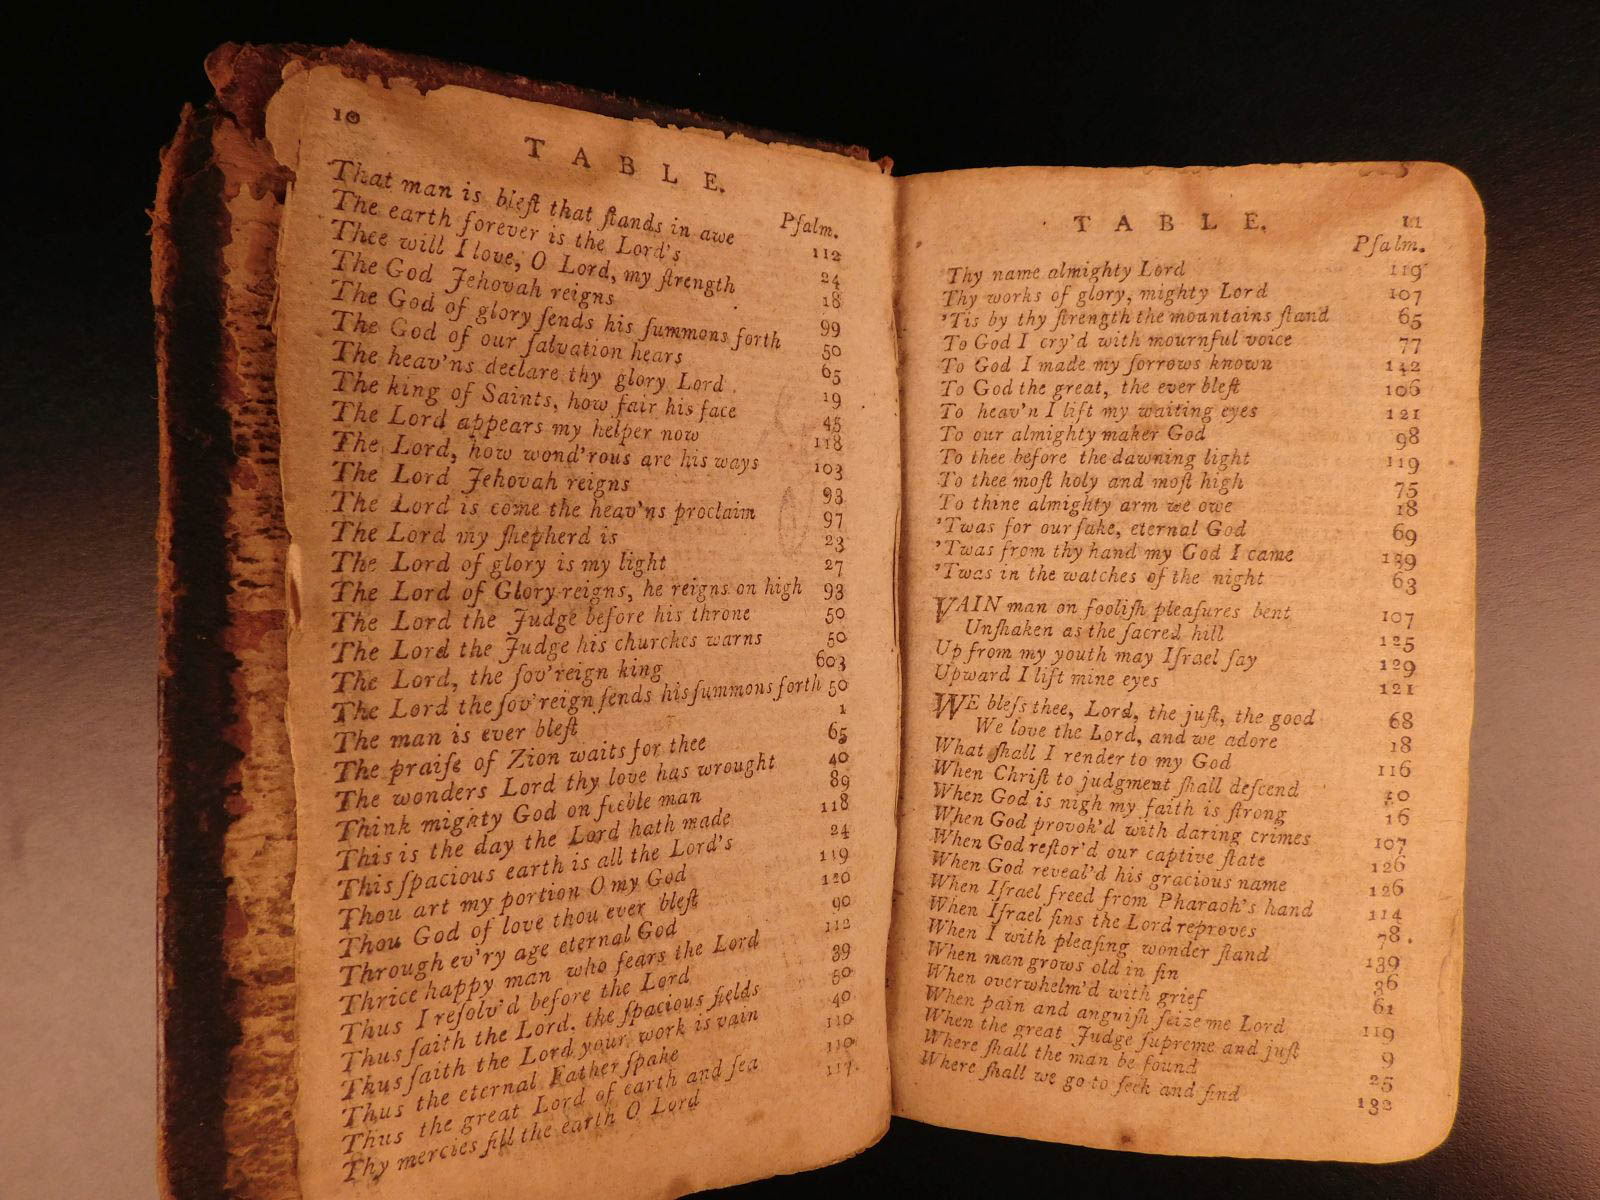 10
TABLE.
Pſalm.
That man is bleſt that ſtands in awe 112
The earth forever is the Lord's 24
Thee will I love, O Lord, my ſtrength 18
The God Jehovah reigns 99
The God of glory ſends his ſummons forth 50
The God of our ſalvation hears 65
The heav'ns declare thy glory Lord 19
The king of Saints, how fair his face 45
The Lord appears my helper now 118
The Lord, how wond'rous are his ways 103
The Lord Jehovah reigns 93
The Lord is come the heav'ns proclaim 97
The Lord my ſhepherd is 23
The Lord of glory is my light 27
The Lord of Glory reigns, he reigns on high 93
The Lord the Judge before his throne 50
The Lord the Judge his churches warns 50
The Lord, the ſov'reign king 603
The Lord the ſov'reign ſends his ſummons forth 50
The man is ever bleſt 1
The praiſe of Zion waits for thee 65
The wonders Lord thy love has wrought 40
Think mighty God on feeble man 89
This is the day the Lord hath made 118
This ſpacious earth is all the Lord's 24
Thou art my portion O my God 119
Thou God of love thou ever bleſt 120
Through ev'ry age eternal God 90
Thrice happy man who fears the Lord 112
Thus I reſolv'd before the Lord 39
Thus ſaith the Lord, the ſpacious fields 50
Thus ſaith the Lord your work is vain 40
Thus the eternal Father ſpake 110
Thus the great Lord of earth and ſea 110
Thy mercies fill the earth O Lord
TABLE. 11
Pſalm.
Thy name almighty Lord 119
Thy works of glory, mighty Lord 107
'Tis by thy ſtrength the mountains ſtand 65
To God I cry'd with mournful voice 77
To God I made my ſorrows known 142
To God the great, the ever bleſt 106
To heav'n I lift my waiting eyes 121
To our almighty maker God 98
To thee before the dawning light 119
To thee moſt holy and moſt high 75
To thine almighty arm we owe 18
'Twas for our ſake, eternal God 69
'Twas from thy hand my God I came 139
'Twas in the watches of the night 63
VAIN man on fooliſh pleaſures bent 107
Unſhaken as the ſacred hill 125
Up from my youth may Iſrael ſay 129
Upward I lift mine eyes 121
WE bleſs thee, Lord, the juſt, the good 68
We love the Lord, and we adore 18
What ſhall I render to my God 116
When Chriſt to judgment ſhall deſcend 50
When God is nigh my faith is ſtrong 16
When God provok'd with daring crimes 107
When God reſtor'd our captive ſtate 126
When God reveal'd his gracious name 126
When Iſrael freed from Pharaoh's hand 114
When Iſrael ſins the Lord reproves 78.
When I with pleaſing wonder ſtand 139
When man grows old in ſin 36
When overwhelm'd with grief 61
When pain and anguiſh ſeize me Lord 119
When the great Judge ſupreme and juſt 9
Where ſhall the man be found 25
Where ſhall we go to ſeek and find 132